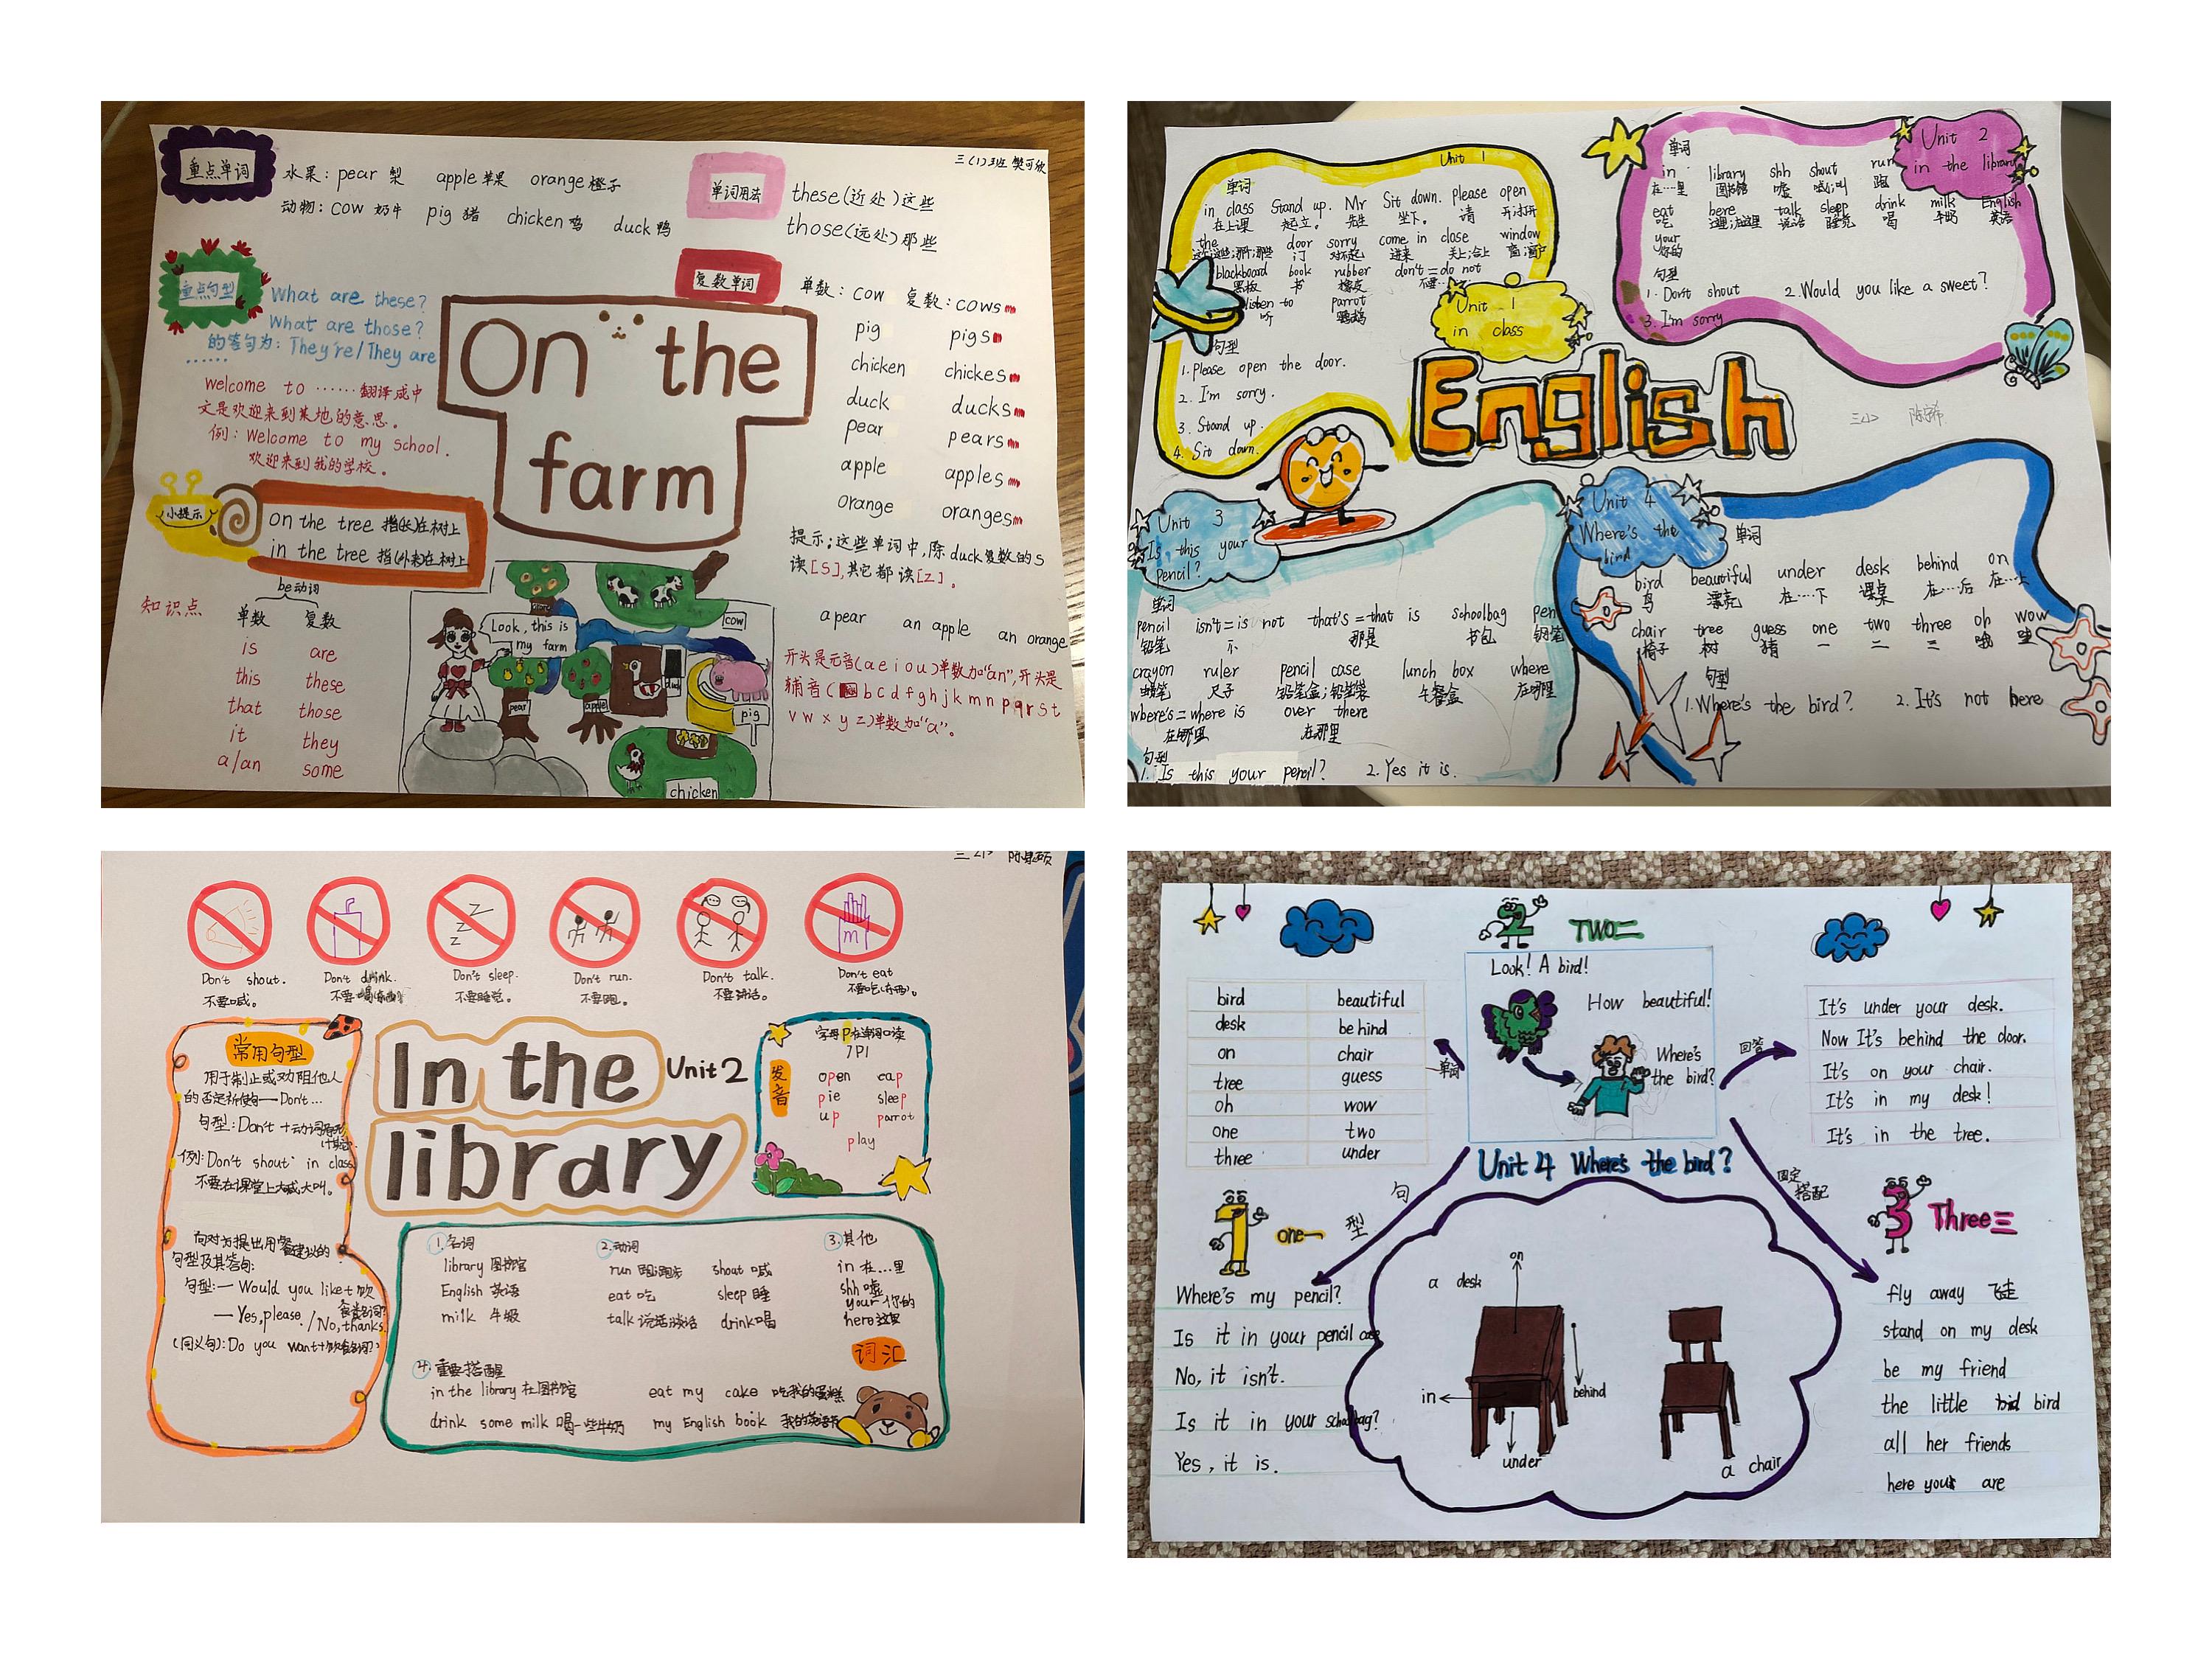 三(1)班 樊可欣
重点单词
水果: pear 梨 apple 苹果 orange 橙子
动物: cow 奶牛 pig 猪 chicken 鸡 duck 鸭
单词用法
these(近处)这些
those(远处)那些
重点句型
What are these?
What are those?
的答句为: They're/They are
......
Welcome to ……翻译成中
文是欢迎来到某地的意思。
例: Welcome to my school.
欢迎来到我的学校。
On the
farm
小提示
on the tree 指(长)在树上
in the tree 指(外来)在树上
知识点
be动词
单数 复数
is are
this these
that those
it they
a/an some
复数单词
单数: cow 复数: cows
pig pigs
chicken chickes
duck ducks
pear pears
apple apples
orange oranges
提示;这些单词中,除duck复数的s
读[S],其它都读[Z]。
a pear an apple an orange
开头是元音(a e i o u)单数加"an",开头是
辅音( b c d f g h j k m n p q r s t
v w x y z)单数加"a"。
Look, this is
my farm
cow
duck
pear
apple
pig
chicken
Unit 1
单词
in class Stand up. Mr Sit down. please open
在上课 起立。 先生 坐下。 请 打开
the door sorry come in close window
门 对不起 进来 关上;合上 窗;窗户
blackboard book rubber don't = do not
黑板 书 橡皮 不要…
listen to parrot
听 鹦鹉
句型
1. Please open the door.
2. I'm sorry.
3. Stand up.
4. Sit down.
Unit 1
in class
Unit 2
in the library
单词
in library shh shout run
在…里 图书馆 嘘 喊;叫 跑
eat here talk sleep drink milk English
吃 这里;在这里 说话 睡觉 喝 牛奶 英语
your
你的
句型
1. Don't shout 2. Would you like a sweet?
3. I'm sorry
English
Unit 3
Is this your
pencil?
单词
pencil isn't = is not that's = that is schoolbag pen
铅笔 不 那是 书包 钢笔
crayon ruler pencil case lunch box where
蜡笔 尺子 铅笔盒;铅笔袋 午餐盒 在哪里
where's = where is over there
在哪里 在那里
句型
1. Is this your pencil? 2. Yes it is.
Unit 4
Where's the
bird
单词
bird beautiful under desk behind on
鸟 漂亮 在…下 课桌 在…后 在…上
chair tree guess one two three oh wow
椅子 树 猜 一 二 三 哦 哇
句型
1. Where's the bird? 2. It's not here
Don't shout. Don't drink. Don't sleep. Don't run. Don't talk. Don't eat
不要喊。 不要喝(东西) 不要睡觉。 不要跑。 不要讲话。 不要吃(东西)。
常用句型
用于制止或劝阻他人
的否定祈使句—Don't...
句型: Don't +动词原形
例: Don't shout in class
不要在课堂上大喊大叫。
句型及其答句:
句型:— Would you like+饮
食类名词?
— Yes, please. / No, thanks.
(同义句): Do you want+饮食名词?
In the
library
Unit 2
发音
字母P在单词中读
/P/
open cap
pie sleep
up parrot
play
1. 名词
library 图书馆
English 英语
milk 牛奶
2. 动词
run 跑;跑步 shout 喊
eat 吃 sleep 睡
talk 说话;谈话 drink 喝
3. 其他
in 在…里
shh 嘘
your 你的
here 这里
词汇
4. 重要搭配
in the library 在图书馆 eat my cake 吃我的蛋糕
drink some milk 喝一些牛奶 my English book 我的英语书
TWO二
Look! A bird!
How beautiful!
Where's
the bird?
bird beautiful
desk behind
on chair
tree guess
oh wow
one two
three under
单词
回答
It's under your desk.
Now It's behind the door.
It's on your chair.
It's in my desk!
It's in the tree.
Unit 4 Where's the bird?
句
型
固定
搭配
one一
Where's my pencil?
Is it in your pencil case
No, it isn't.
Is it in your schoolbag?
Yes, it is.
on
a desk
in
behind
under
a chair
Three三
fly away 飞走
stand on my desk
be my friend
the little bird
all her friends
here your are